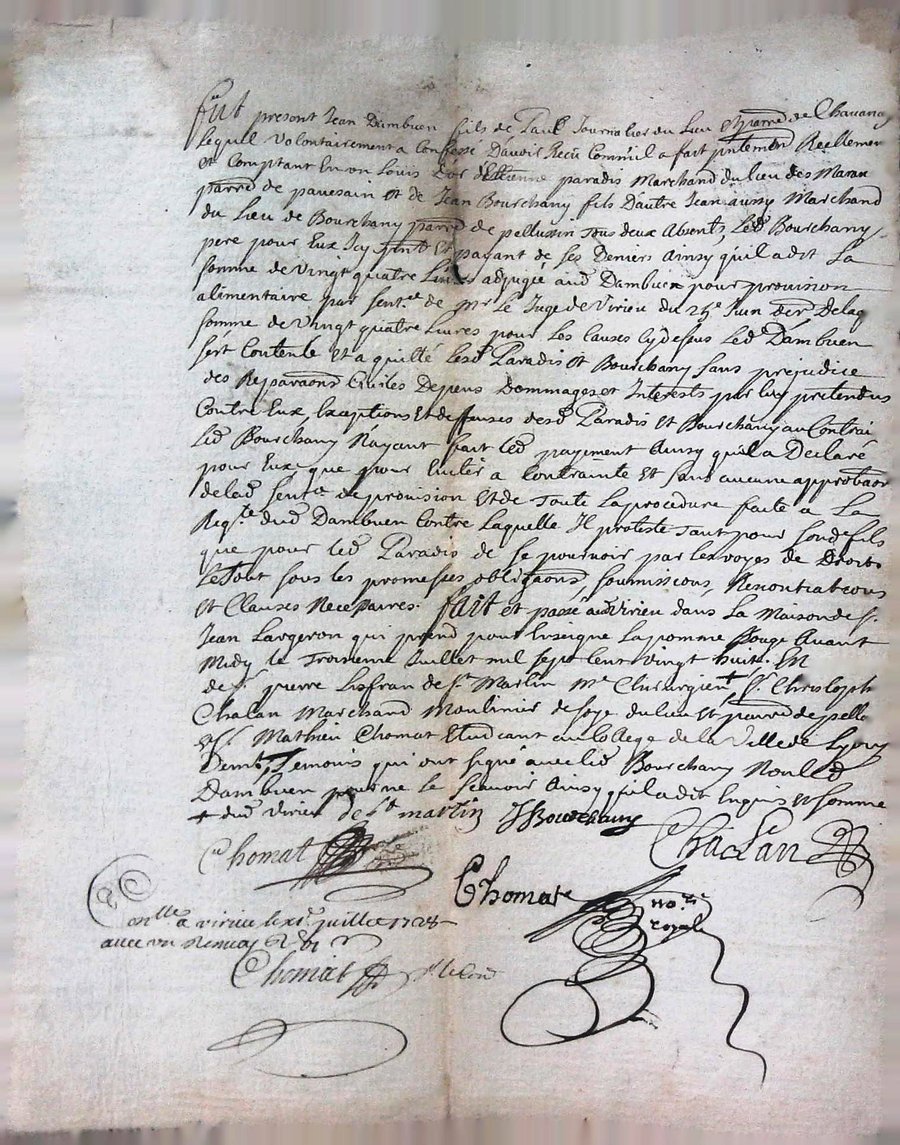 fut present Jean Dambuen fils de Paul Journalier du Lieu et parre de Chavanay
lequel volontairement a Confessé D'avoir Recu Comm'il a fait pntemen Reellemen
et Comptant En un Louis D'or d'Ettienne paradis Marchand du lieu des Maran
parre de pavesain et de Jean Bourchany fils d'autre Jean aussy Marchand
du Lieu de Bourchany parre de pellussin tous deux absents, Led Bourchany
pere pour Eux Icy pnt et payant de ses Deniers Ainsy qu'il a dit La
somme de Vingt quatre Livres adjugée aud Dambuen pour provision
alimentaire par Sentce de Mr Le Juge de Virieu du 25e Juin der De laq
somme de Vingt quatre Livres pour Les Causes Cy dessus Led Dambuen
s'est Contenté Et a quitté Lesd Paradis et Bourchany sans prejudice
des Reparaons Civiles Depens Dommages et Interests par luy pretendus
Contre Eux Exceptions Et deffenses desd Paradis et Bourchany au Contrai
Led Bourchany N'ayant fait Led payement Ainsy qu'il a Declaré
pour Eux que pour Eviter a Contrainte Et sans aucune approbaon
de lad Sentce de provision Et de Toute La procedure faite a La
Reqte dud Dambuen Contre Laquelle Il proteste Tant pour sond fils
que pour led Paradis de se pourvoir par les voyes de Droits
Le Tout sous les promesses obligaons, soumissions, Renontiateons
et Clauses Necessaires. fait et passé aud Virieu dans La Maison de S.
Jean Largeron qui prend pour Enseigne La pomme Rouge Avant
Midy le Troisieme Juillet mil sept Cent Vingt huit. En
de S. pierre Lisfran de St Martin Me Chirurgien + S. Christoph
Chalan Marchand Moulinier de soye du lieu Et parre de pellu
et S. Mathieu Chomat Etudiant au College de la Ville de Lyon
Demt, Temoins qui ont signé avec led Bourchany Non led
Dambuen pour ne le sçavoir Ainsy qu'il a dit Enquis et somme
+ dud Virieu de St martin JBourchany
Chomat Chaslan
Chomat no.re
royal
onlle a virieu le xie juillet 1728
avec un Renvoy
Chomat